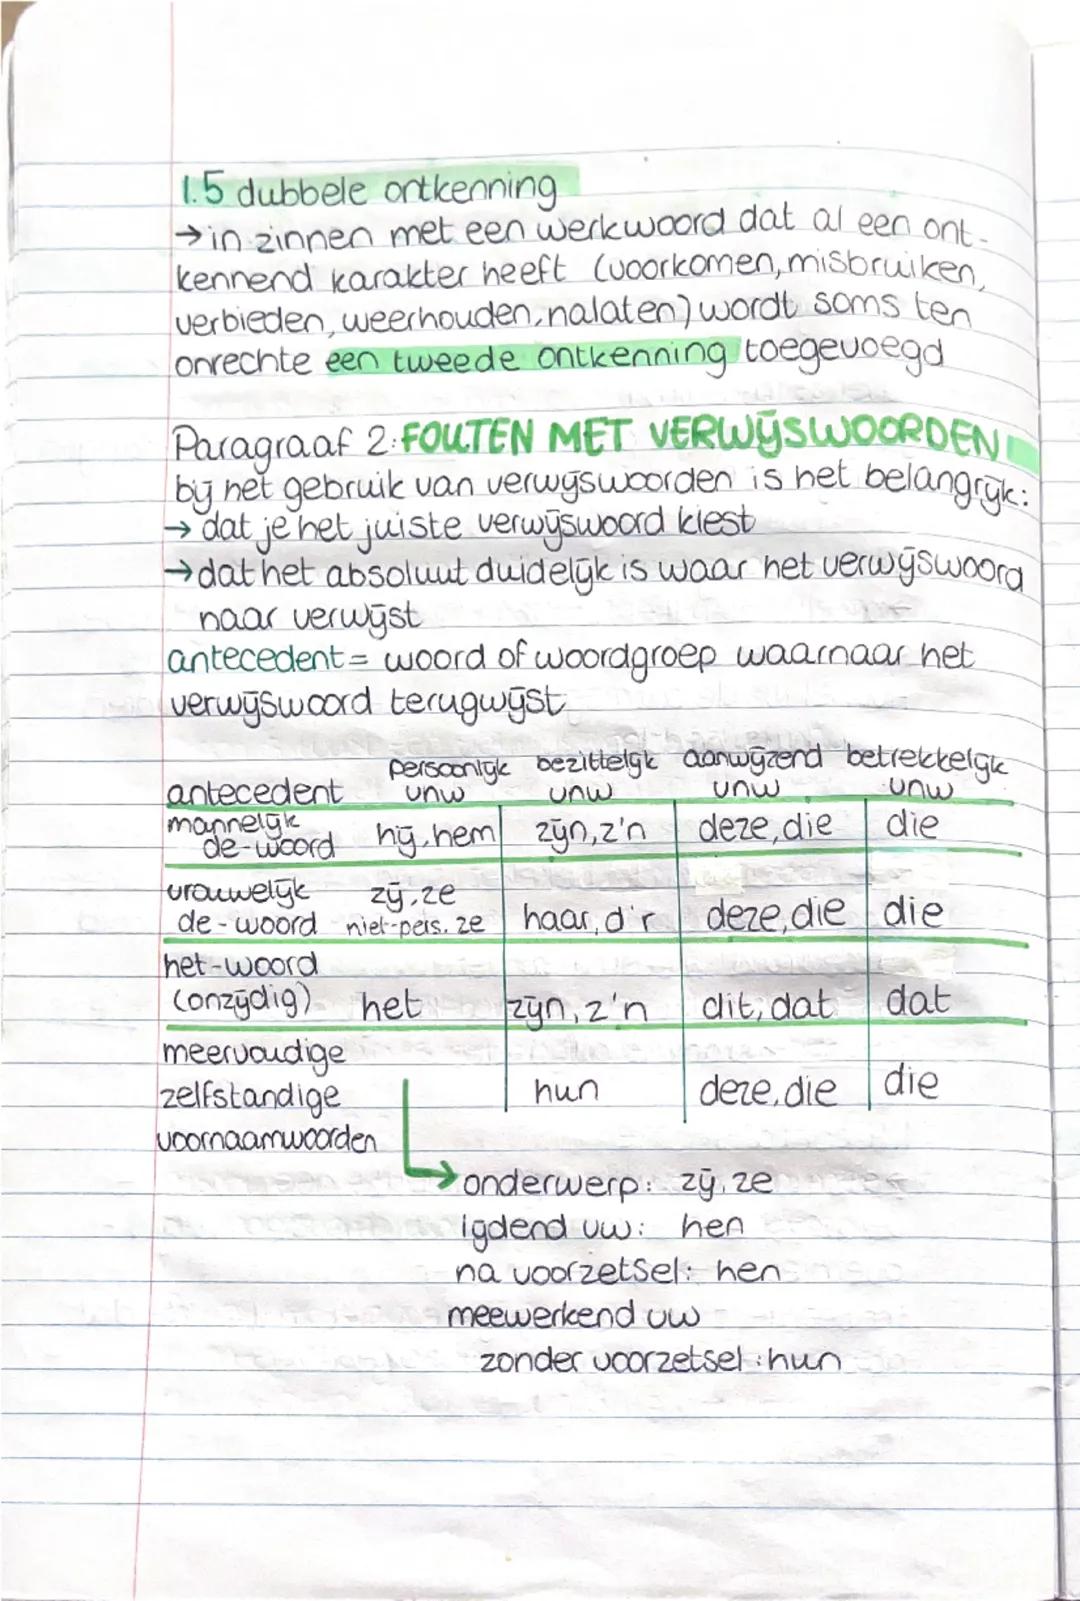 1.5 dubbele ontkenning
→ in zinnen met een werkwoord dat al een ont-
kennend karakter heeft (voorkomen, misbruiken,
verbieden, weerhouden, nalaten) wordt soms ten
onrechte een tweede ontkenning toegevoegd
Paragraaf 2: FOUTEN MET VERWIJSWOORDEN
bij het gebruik van verwijswoorden is het belangrijk:
→ dat je het juiste verwijswoord kiest
→ dat het absoluut duidelijk is waar het verwijswoord
naar verwijst
antecedent = woord of woordgroep waarnaar het
verwijswoord terugwijst
persoonlijk bezittelijk aanwijzend betrekkelijk
antecedent vnw vnw vnw vnw
mannelijk
de-woord hij, hem zijn, z'n deze, die die
vrouwelijk zij, ze
de-woord niet-pers. ze haar, d'r deze, die die
het-woord
(onzijdig) het zijn, z'n dit, dat dat
meervoudige
zelfstandige hun deze, die die
voornaamwoorden
→ onderwerp: zij, ze
lijdend vw: hen
na voorzetsel: hen
meewerkend vw
zonder voorzetsel: hun